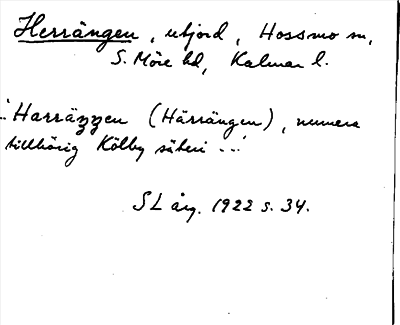 Herrängen, utjord, Hossmo sn,
S. Möre hd, Kalmar l.
"Harräŋŋen (Härrängen), numera
tillhörig Kölby säteri ..."
SL årg. 1922 s. 34.